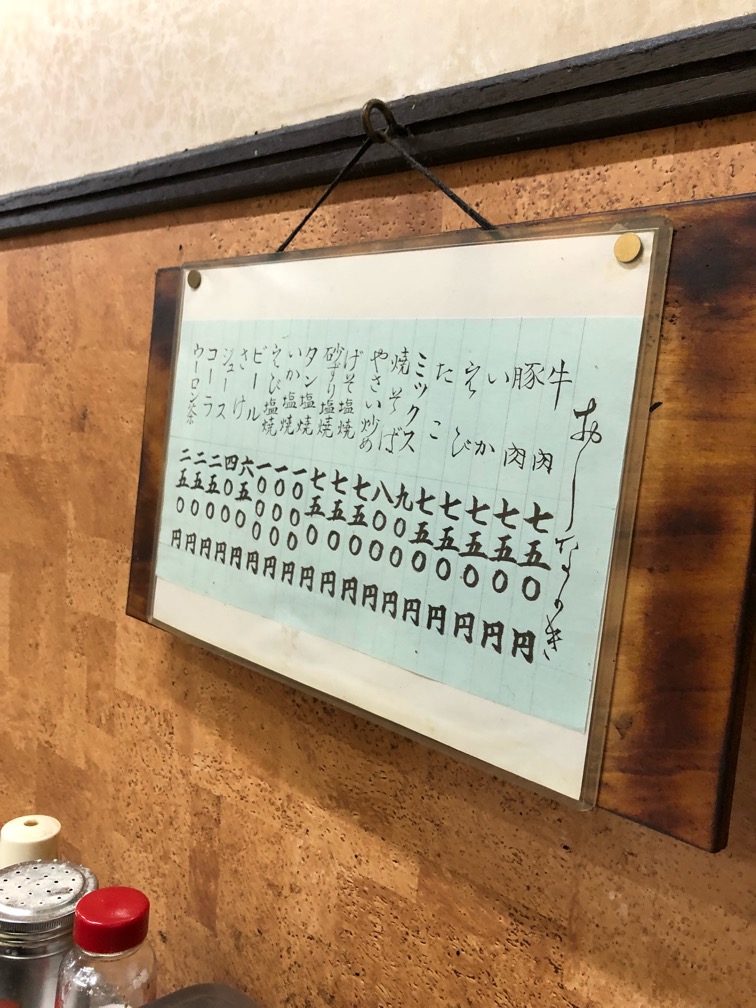 おしながき
牛肉 七五〇円
豚肉 七五〇円
いか 七五〇円
えび 七五〇円
たこ 七五〇円
ミックス 九〇〇円
焼そば 八〇〇円
やさい炒め 七五〇円
げそ塩焼 七五〇円
砂ずり塩焼 七五〇円
タン塩焼 一〇〇〇円
いか塩焼 一〇〇〇円
えび塩焼 一〇〇〇円
ビール 六五〇円
さけ 四〇〇円
ジュース 二五〇円
コーラ 二五〇円
ウーロン茶 二五〇円